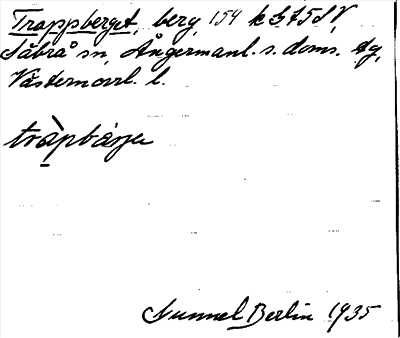 Trappberget, berg, 154 k bl 75 SV,
Säbrå sn, Ångermanl. s. doms. dg,
Västernorrl. l.
tràpbárje
Nunnel Berlin 1935